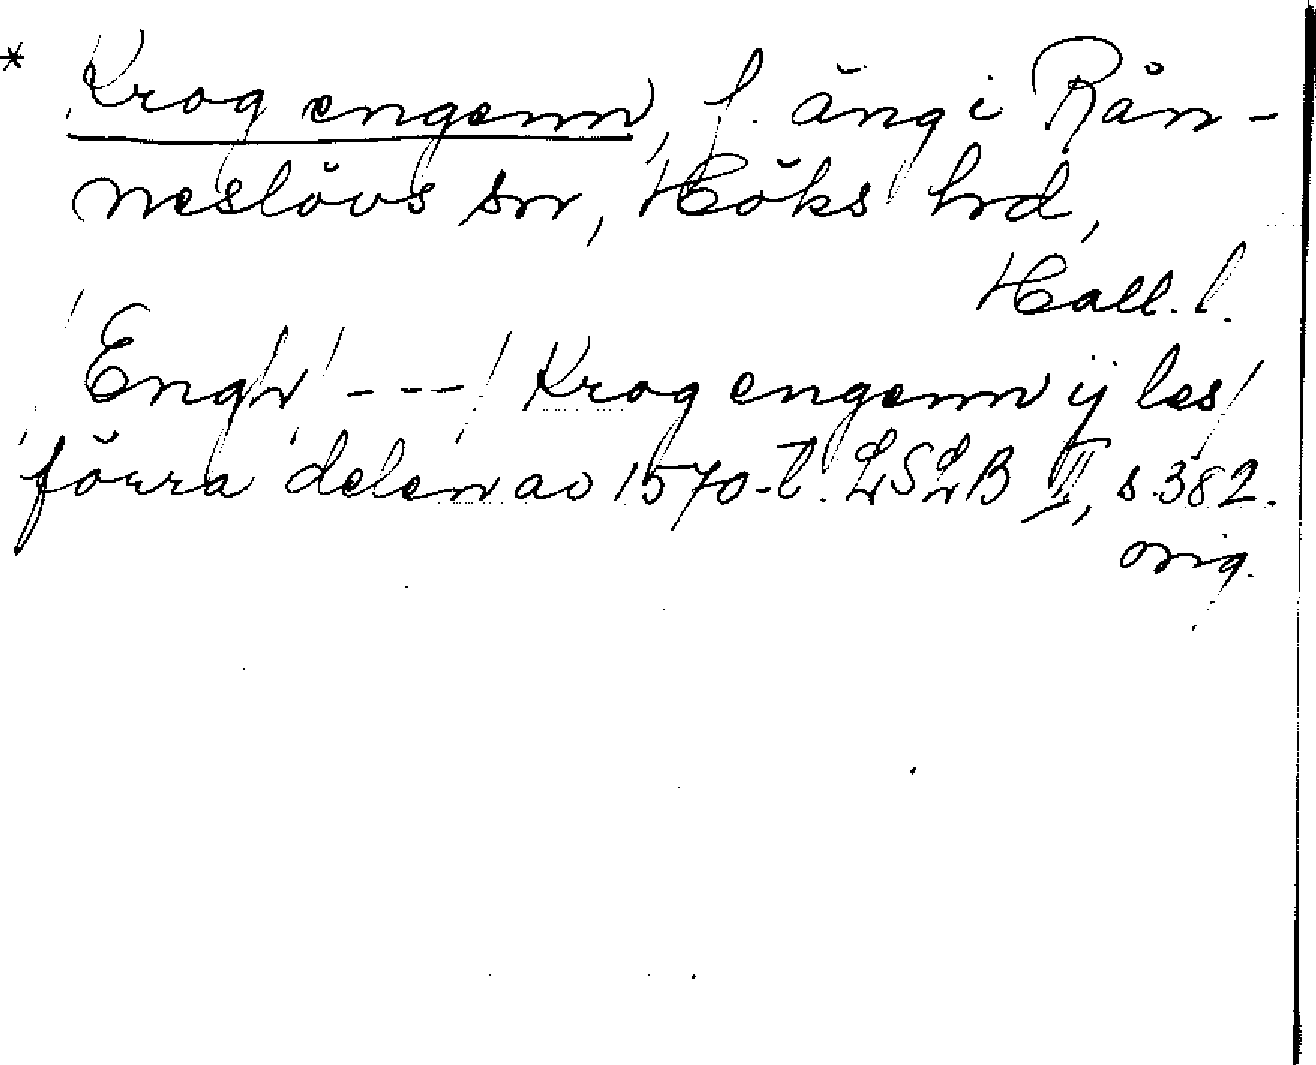 * Krog engenn, f. äng i Rän-
neslövs sn, Höks hrd,
Hall. l.
/Engh/ --- / Krog engenn ij les/
förra delen av 1570-t. LSLB II, s. 382.
orig.